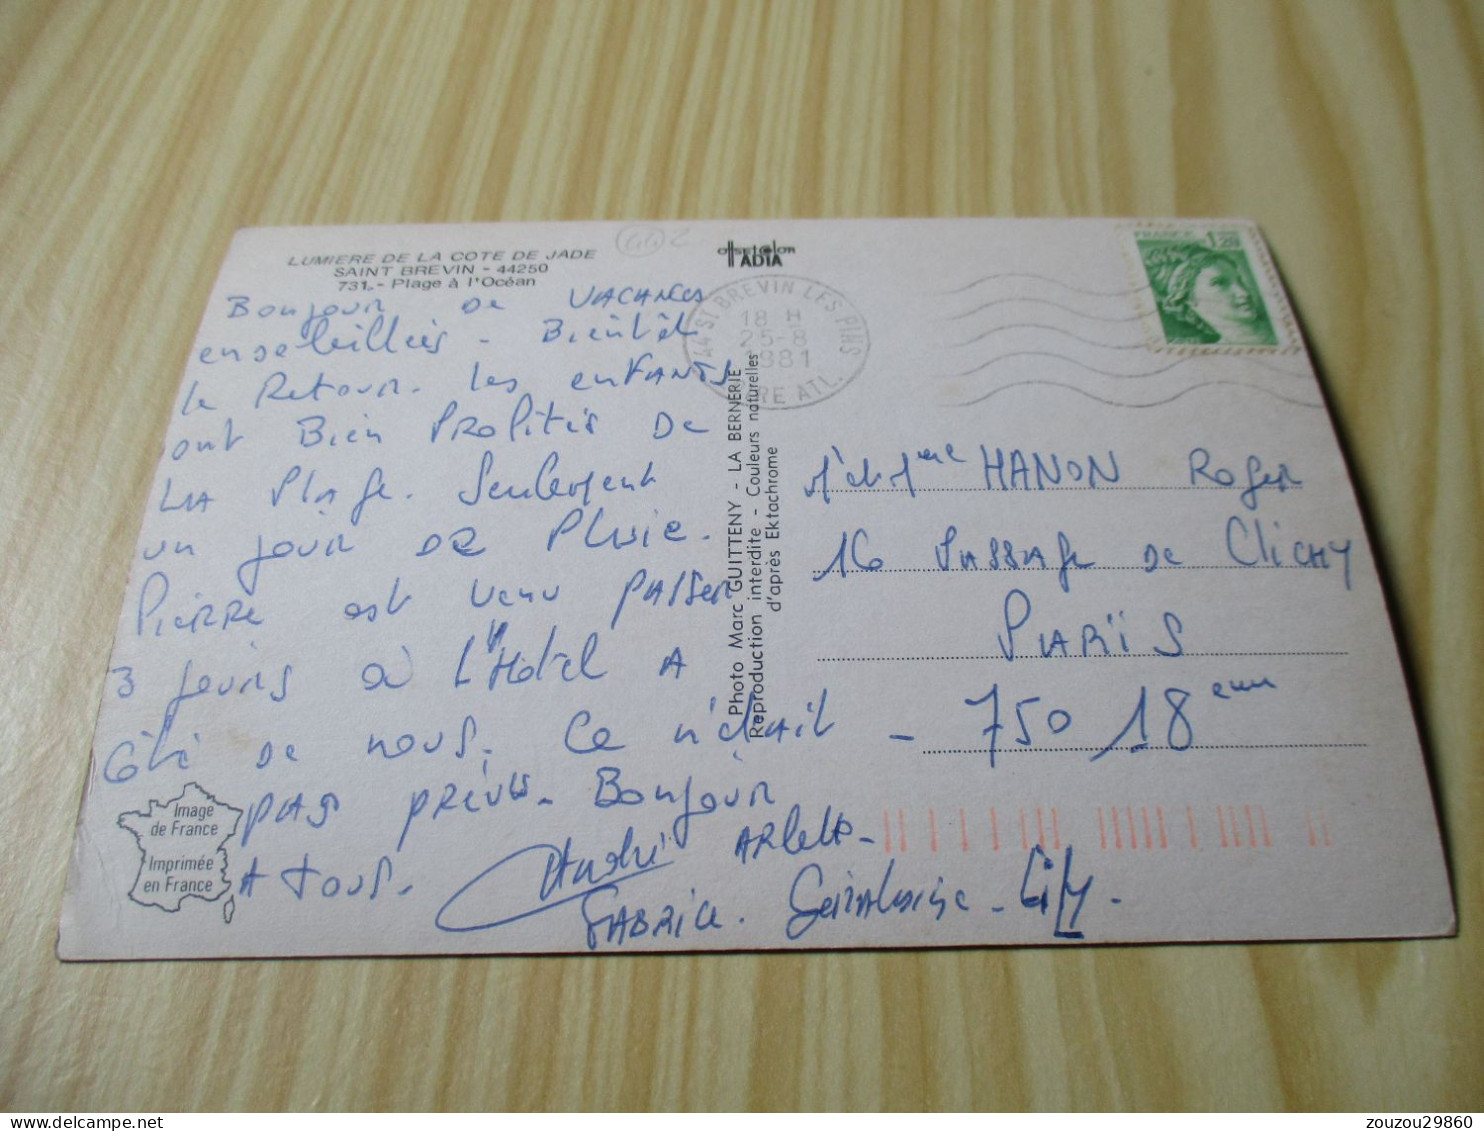 LUMIERE DE LA COTE DE JADE
SAINT BREVIN - 44250
731.- Plage à l'Océan
442
offsetcolor
ADIA
Bonjour de VACANCES
ensoleillées - Bientôt
le Retour. les enfants
ont Bien Profités de
LA Plage. Seulement
un jour de Pluie.
Pierre est venu passer
3 jours à l'Hôtel A
Côté de nous. Ce n'était
pas prévus. Bonjour
A tous.
André Arlette -
FABRICE. - Gily.
44 ST BREVIN LES PINS
18 H
25-8
1981
LOIRE ATL.
FRANCE 1,20
Photo Marc GUITTENY - LA BERNERIE
Reproduction interdite - Couleurs naturelles
d'après Ektachrome
M et Mme HANON Roger
16 PASSAGE de CLICHY
PARIS
- 750 18 eme
Image
de France
Imprimée
en France
zouzou29860